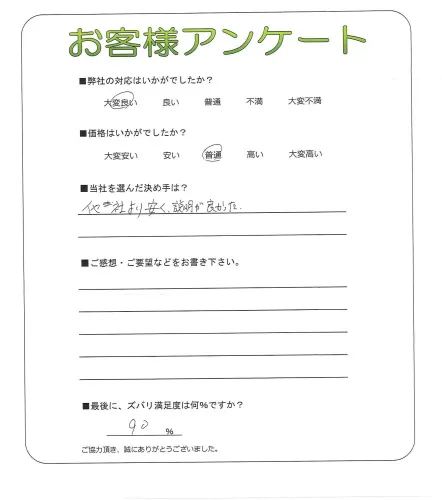 お客様アンケート
■弊社の対応はいかがでしたか？
大変良い 良い 普通 不満 大変不満
■価格はいかがでしたか？
大変安い 安い 普通 高い 大変高い
■当社を選んだ決め手は？
他社より安く、説明が良かった.
■ご感想・ご要望などをお書き下さい。
■最後に、ズバリ満足度は何％ですか？
90 ％
ご協力頂き、誠にありがとうございました。